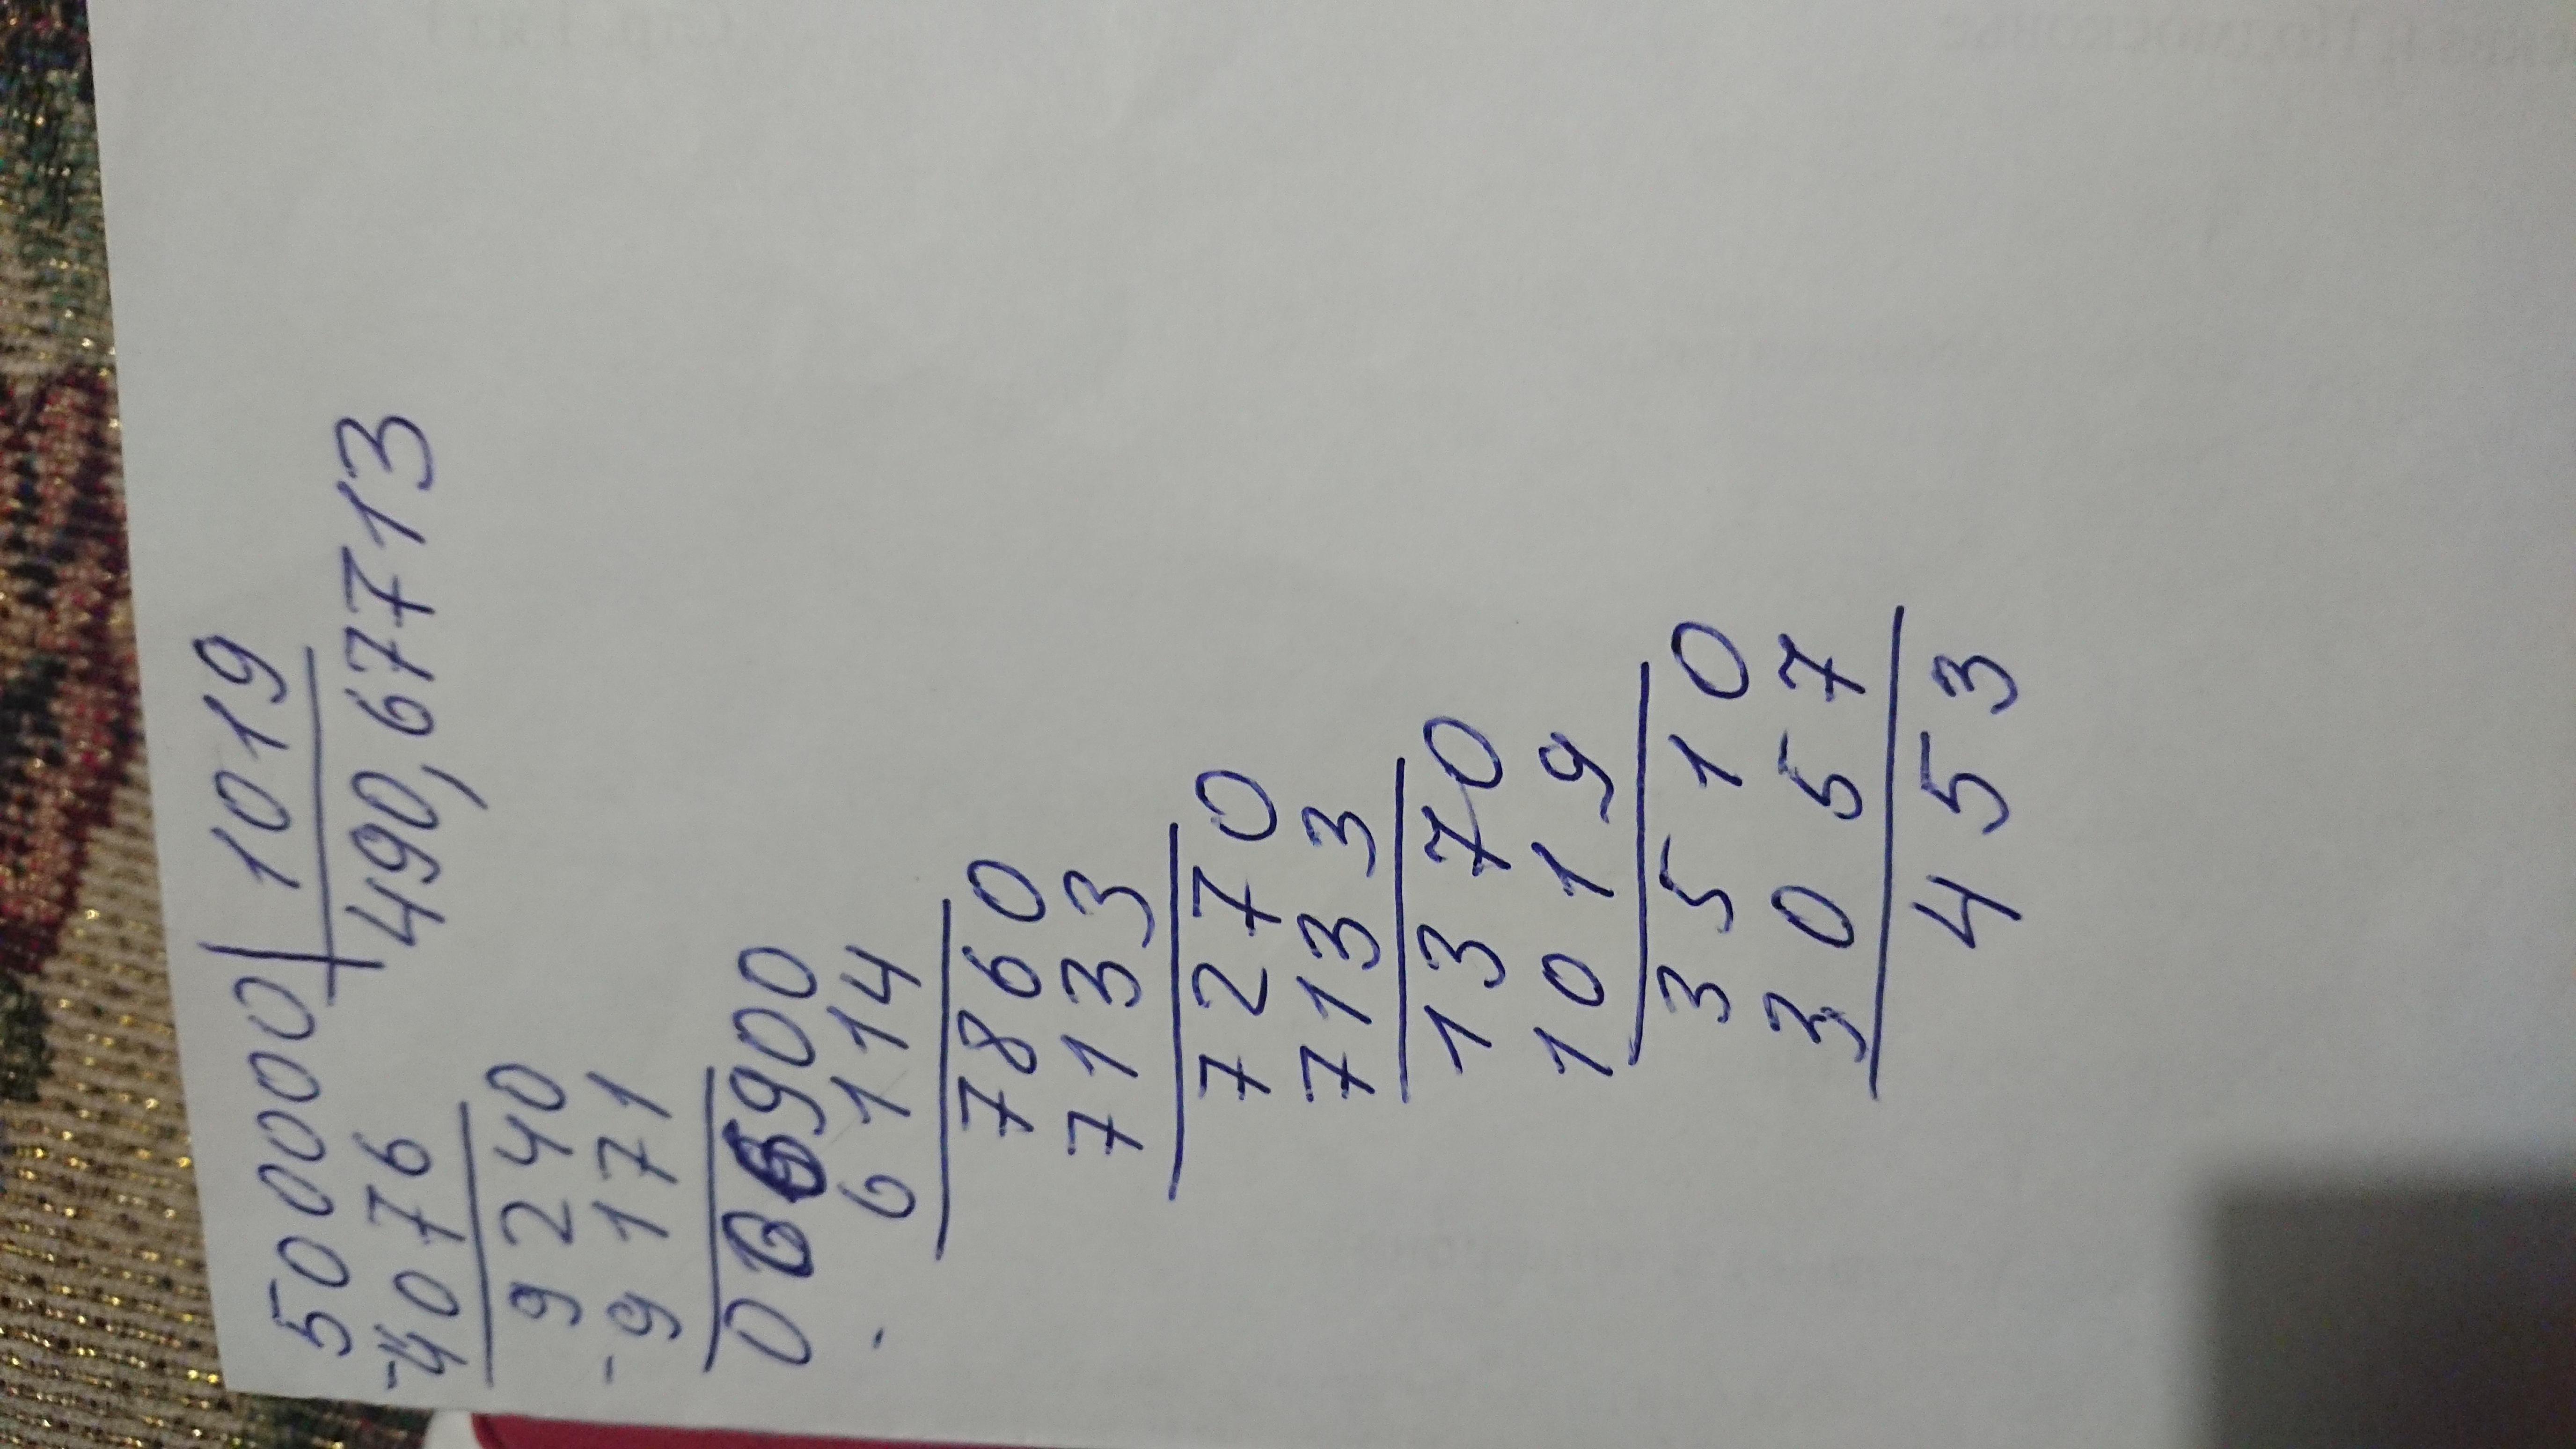 500000 | 1019
-4076 490,67713
9240
-9171
006900
6114
7860
7133
7270
7133
1370
1019
3510
3057
453